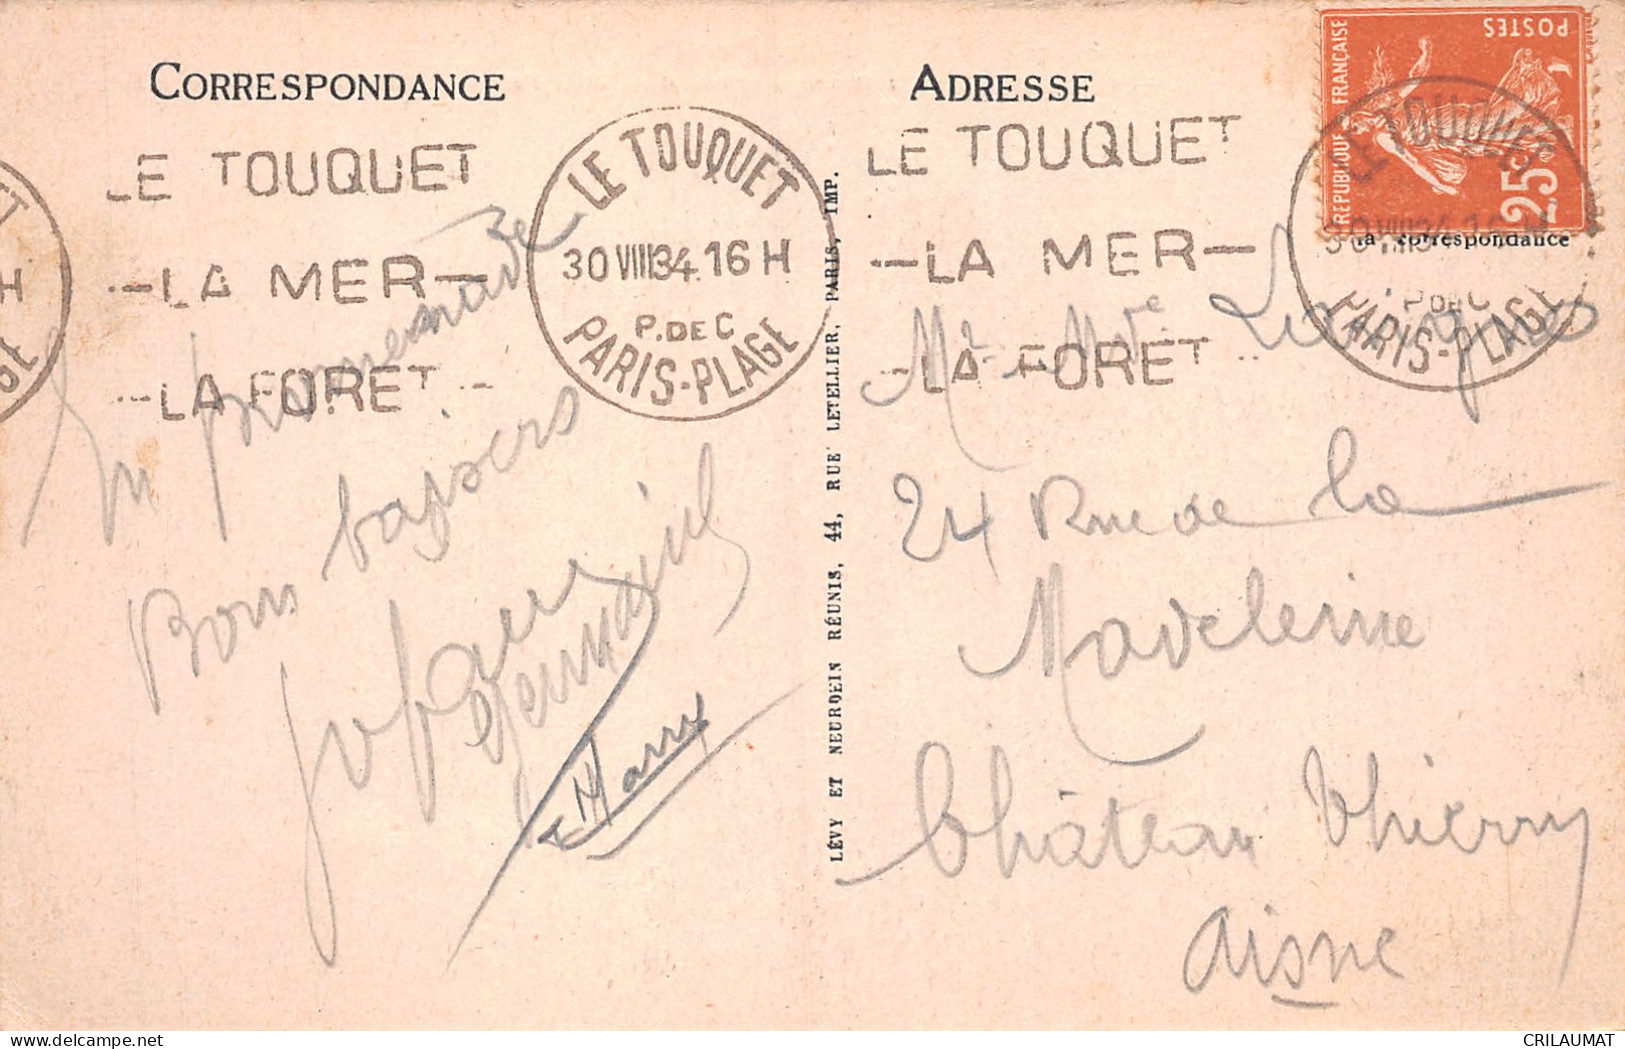 CORRESPONDANCE
LE TOUQUET
—LA MER—
—LA FORET
LE TOUQUET
30 VIII 34 16 H
P. DE C
PARIS-PLAGE
En promenade
Bons baisers
Germaine
Marry
LÉVY ET NEURDEIN RÉUNIS, 44, RUE LETELLIER, PARIS, IMP.
ADRESSE
LE TOUQUET
—LA MER—
—LA FORET
POSTES
REPUBLIQUE FRANÇAISE
25c
LE TOUQUET
30 VIII 34 16 H
P. DE C
PARIS-PLAGE
la correspondance
Mr Mme
24 Rue de la
Madeleine
Château Thierry
Aisne
CRILAUMAT